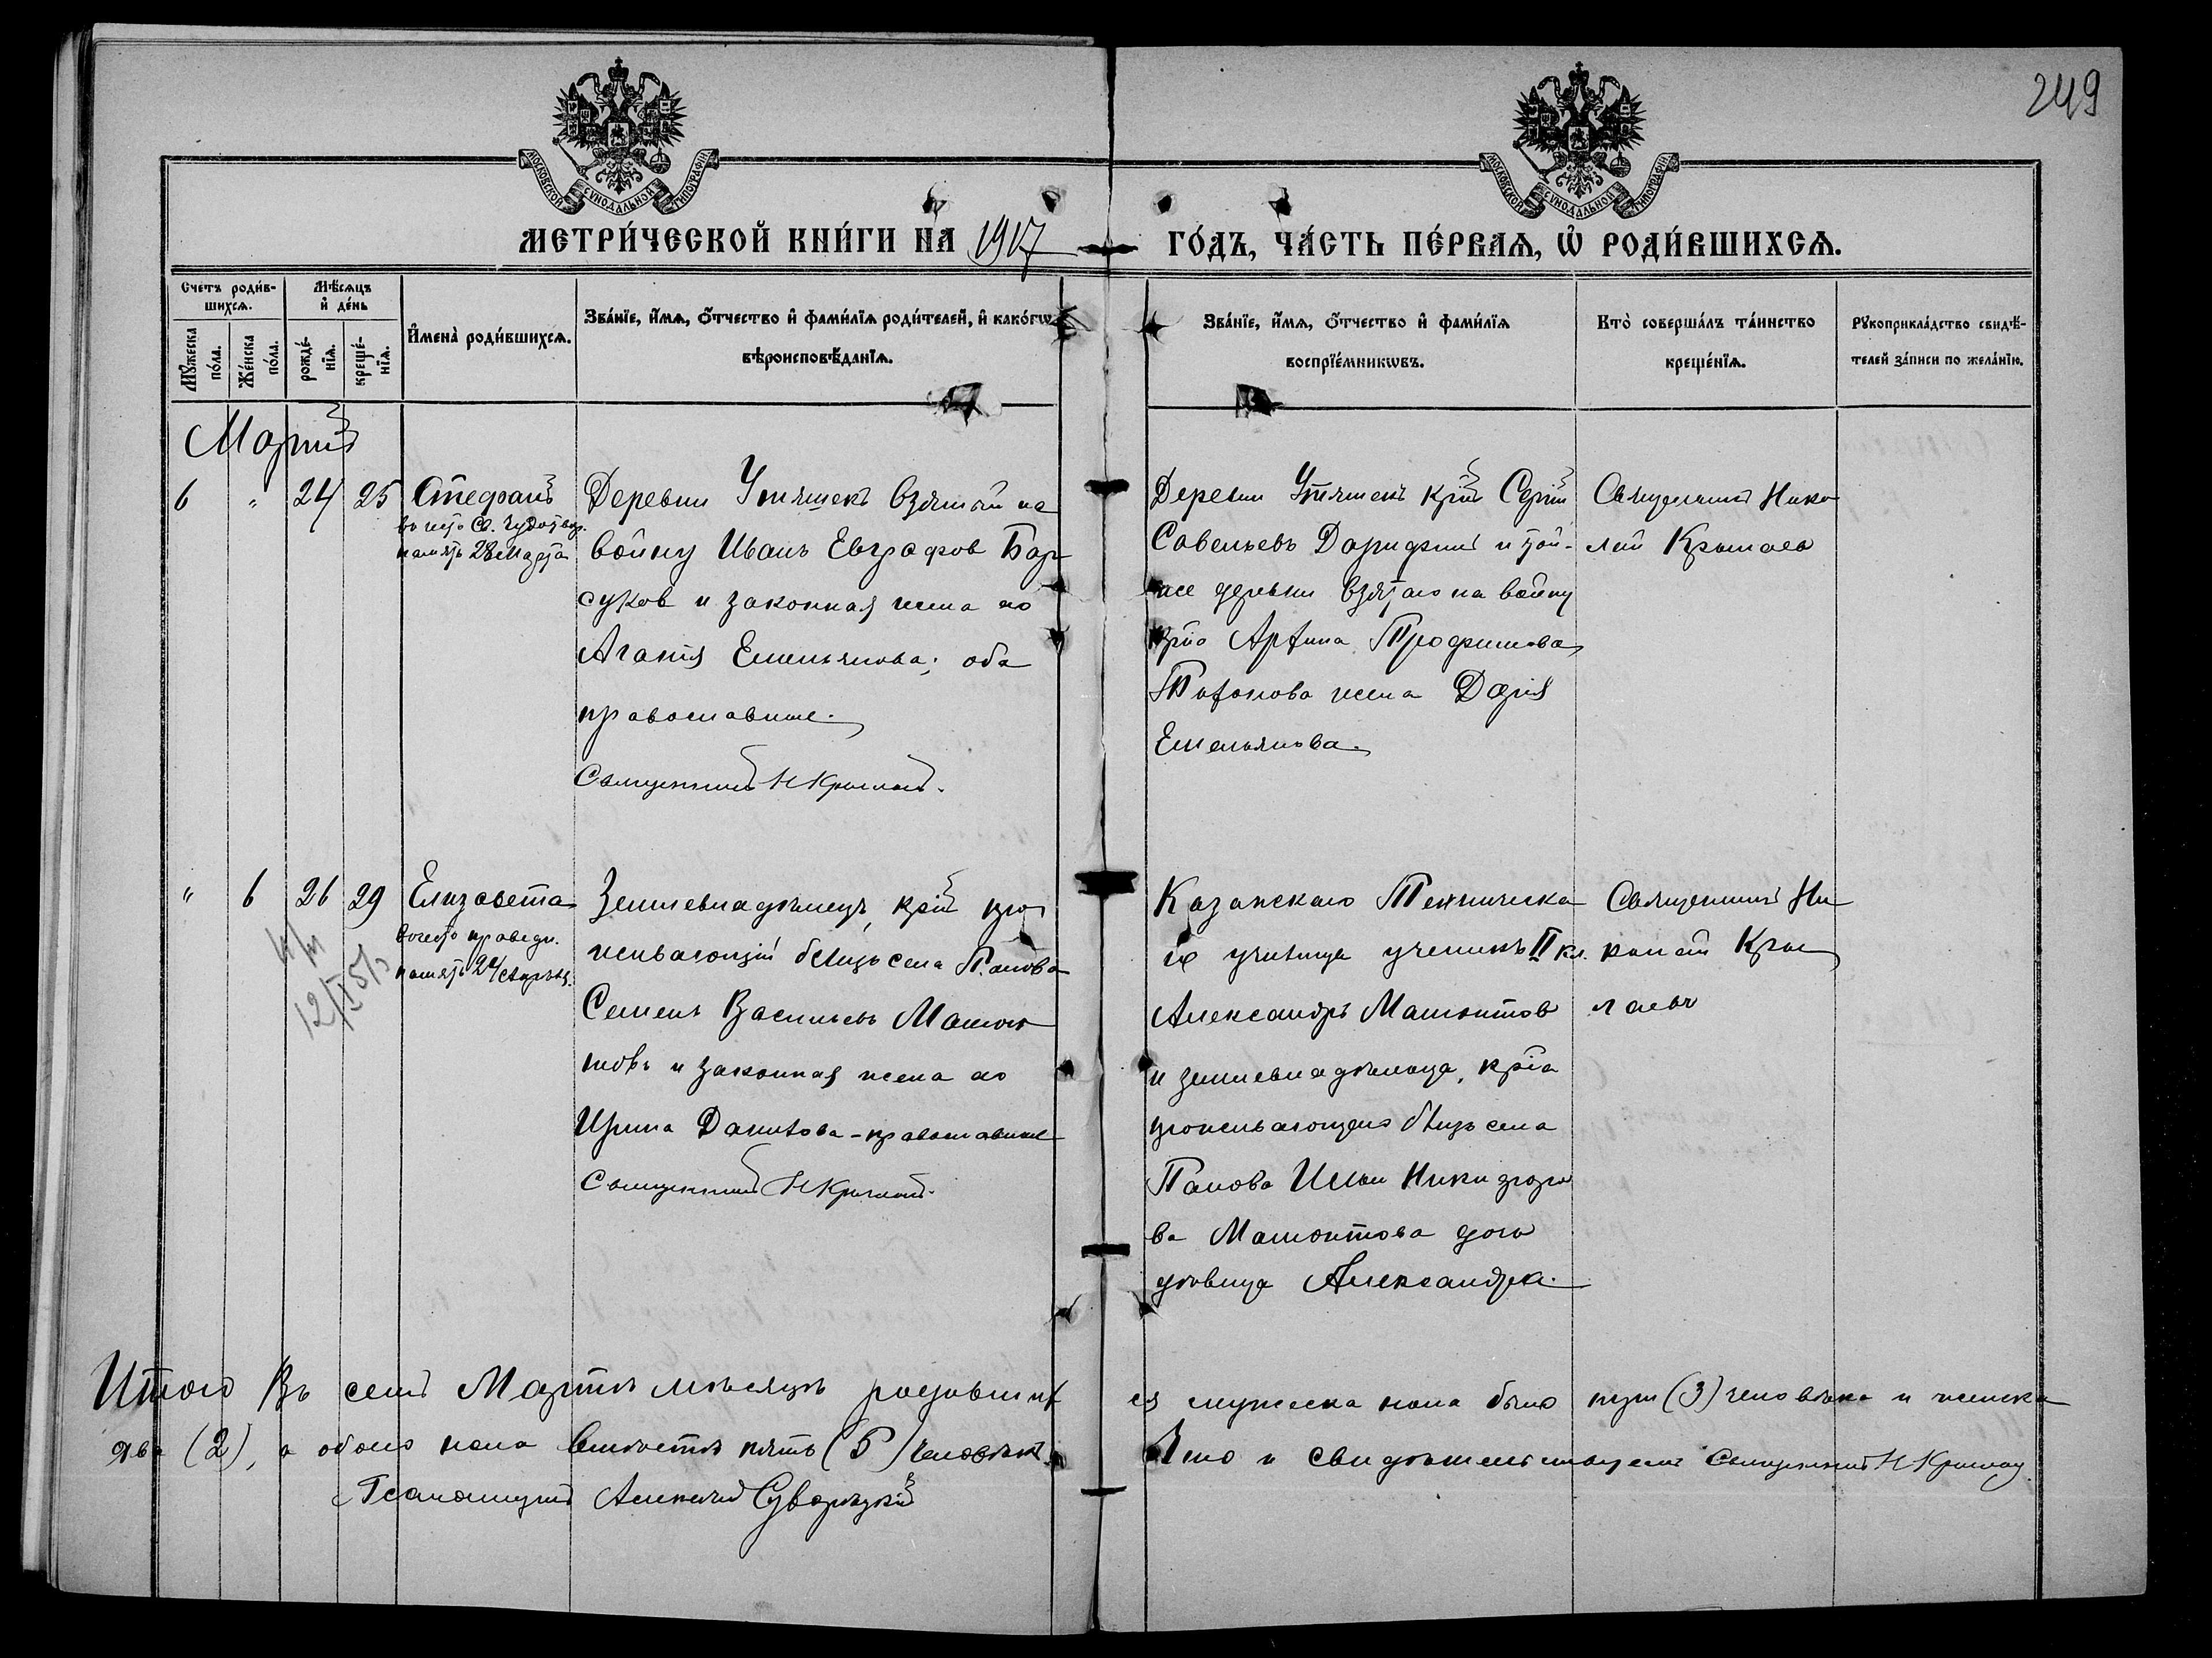 249
МОСКОВСКОЙ СѴНОДАЛЬНОЙ ТИПОГРАФІИ
МОСКОВСКОЙ СѴНОДАЛЬНОЙ ТИПОГРАФІИ
МЕТРИ́ЧЕСКОЙ КНИ́ГИ НА 1917 ГО́ДЪ, ЧА́СТЬ ПЕ́РВАѦ, Ѡ РОДИ́ВШИХСѦ.
Счетъ роди́в-
шихсѧ.
Мѣсѧцъ
и де́нь
Мꙋжеска
по́ла.
Же́нска
по́ла.
рожде́-
нїѧ.
креще́-
нїѧ.
И҆мена̀ роди́вшихсѧ.
Зва́нїе, и҆́мѧ, ѻ҆́тчество и҆ фами́лїѧ роди́телей, и҆ како́гѡ
вѣроисповѣ́данїѧ.
Зва́нїе, и҆́мѧ, ѻ҆́тчество и҆ фами́лїѧ
воспрїе́мникѡвъ.
Кто̀ соверша́лъ та́инство
креще́нїѧ.
Рꙋкоприкла́дство свидѣ́-
телей за́писи по жела́нїю.
Мартъ
6 " 24 25 Стефанъ
въ честь Св. Чудотвор.
память 28 Марта
Деревни Утяшекъ взятый на
войну Иванъ Евграфов Бар
суков и законная жена его
Агапія Емельянова; оба
православные.
Священникъ Н Крылов.
Деревни Утяшекъ кр-нъ Сергій
Савельевъ и той-
же деревни взятаго на войну
кр-на Артина Трофимова
жена Дарія
Емельянова.
Священникъ Нико
лай Крылаев
" 6 26 29 Елизавета
въ честь праведн.
память 24 Апрѣля.
12/I 51
Землевладѣлецъ, кр-нъ про
живающій близь села Панова
Семенъ Васильевъ Мамон
товъ и законная жена его
Ирина Данилова - православные
Священникъ Н Крылов.
Казанскаго Техническа
го училища ученикъ II кл.
Александръ Мамонтов
и землевладѣльца, кр-на
проживающаго близь села
Панова Ильи Никифоро
ва Мамонтова дочь
дѣвица Александра.
Священникъ Ни
колай Кры
лаевъ
Итого Въ семъ Мартѣ мѣсяцѣ родивших
ся мужеска пола было три (3) человѣка и женска
два (2), а обоего пола вмѣстѣ пять (5) человѣкъ.
Что и свидѣтельствуемъ Священникъ Н Крылов
Псаломщикъ Алексѣй